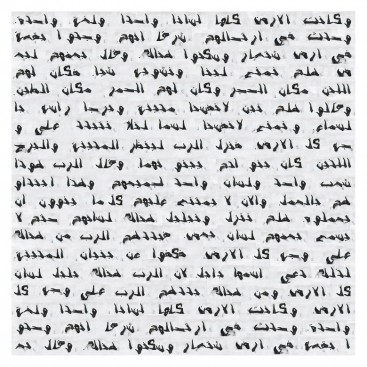 وكانت الارض كلها لسانا واحدا ولغة
واحدة وحدث في ارتحالهم شرقا انهم وجدوا بقعة
في ارض شنعار وسكنوا هناك وقال بعضهم لبع
ض هلم نصنع لبنا ونشويه شيا فكان لهم
اللبن مكان الحجر وكان لهم الحمر مكان الطين
وقالوا هلم نبن لانفسنا مدينة وبرجا راسه با
لسماء ونصنع لانفسنا اسما لئلا نتبدد على و
جه كل الارض فنزل الرب لينظر المدينة والبرج
اللذين كان بنو ادم يبنونهما وقال الرب هوذا
شعب واحد ولسان واحد لجميعهم وهذا ابتداو
هم بالعمل والان لا يمتنع عليهم كل ما ينوون ان
يعملوه هلم ننزل ونبلبل هناك لسانهم حتى لا
يسمع بعضهم لسان بعض فبددهم الرب من هناك
على وجه كل الارض فكفوا عن بنيان المدينة
لذلك دعي اسمها بابل لان الرب هناك بلبل لسان
كل الارض ومن هناك بددهم الرب على وجه
كل الارض وكانت الارض كلها لسانا واحدا ولغة
واحدة وحدث في ارتحالهم شرقا انهم وجدو
ا بقعة في ارض شنعار وسكنوا هناك وقال بع